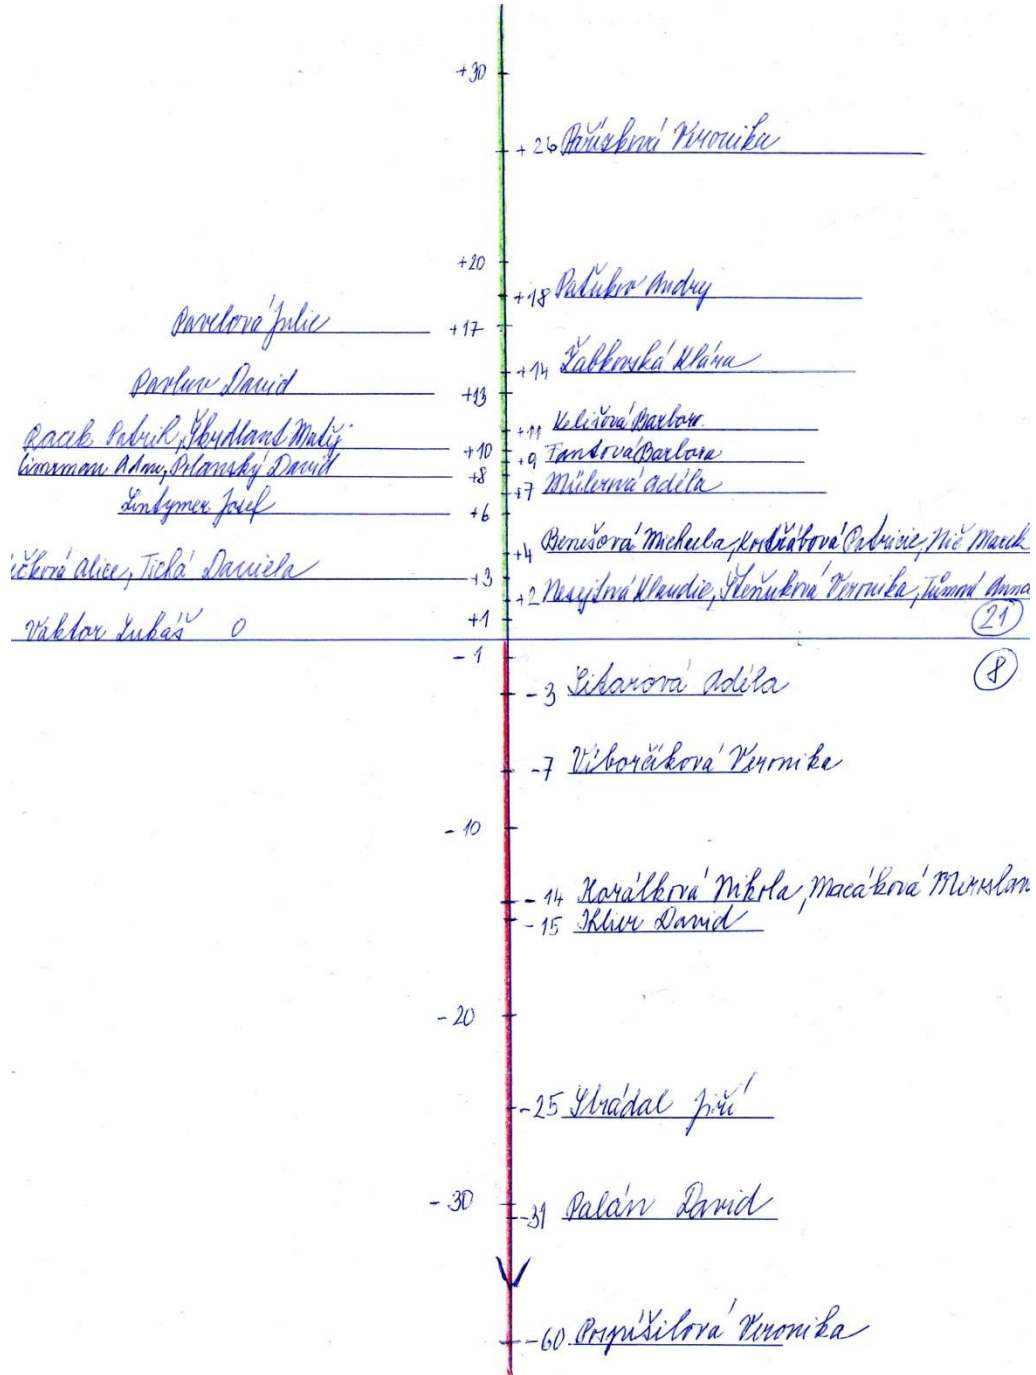 +30
+26 Pařízková Veronika
+20
+18 Paťukov Andrej
Pavelová Julie +17
+14 Žabkovská Klára
Pavluv David +13
+11 Kelišová Barbora
Racek Patrik, Škrdlant Matěj +10
+9 Fantová Barbora
Cimrman Adam, Polanský David +8
+7 Mülerová Adéla
Lintymer Josef +6
+4 Benišová Michaela, Kostřábová Patricie, Nič Marek
Alice, Tichá Daniela +3
+2 Nesejtová Klaudie, Šteňuková Veronika, Tůmová Anna
+1
21
Vaktor Lukáš 0
-1
8
-3 Sitarová Adéla
-7 Víborčíková Veronika
-10
-14 Korálková Nikola, Macáková
-15 Klier David
-20
-25 Strádal Jiří
-30
-31 Palán David
-60 Pospíšilová Veronika